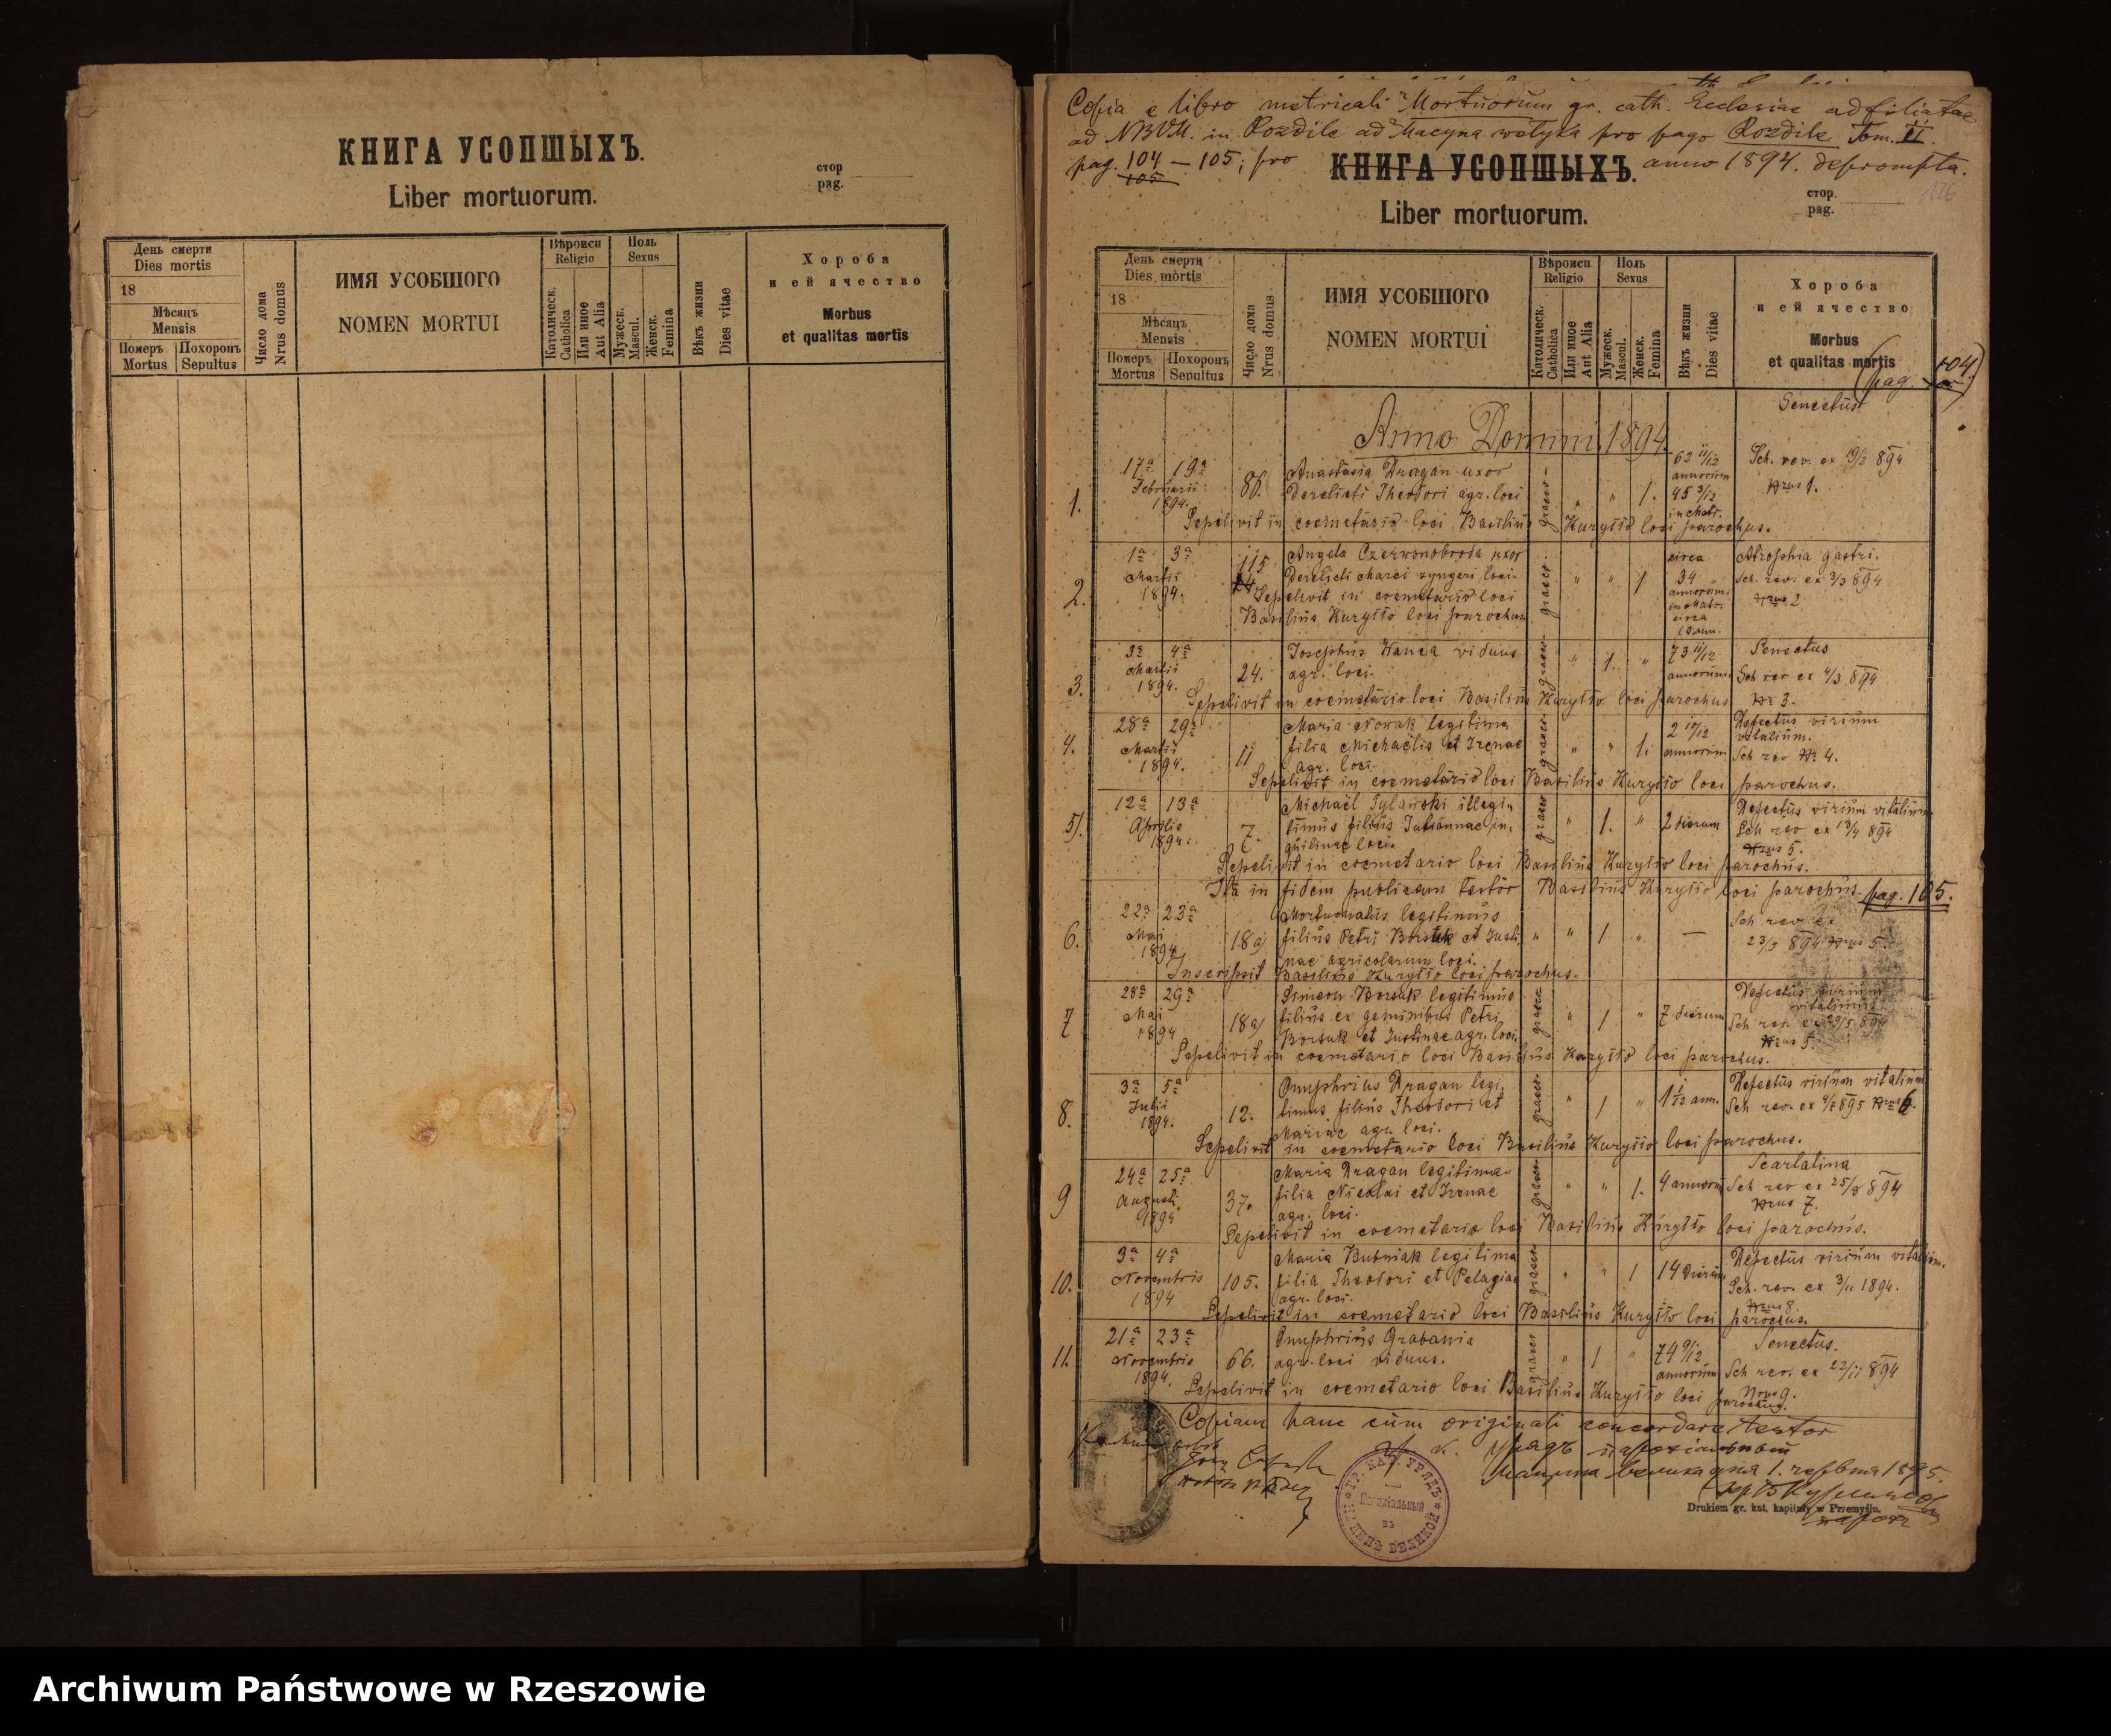 КНИГА УСОПШЫХЪ.
Liber mortuorum.
стор
pag.
День смерти
Dies mortis
18
Мѣсяцъ
Mensis
Померъ
Mortus
Похоронъ
Sepultus
Число дома
Nrus domus
ИМЯ УСОБШОГО
NOMEN MORTUI
Вѣроисп
Religio
Католическ.
Catholica
Или иное
Aut Alia
Поль
Sexus
Мужеск.
Mascul.
Женск.
Femina
Вѣкъ жизни
Dies vitae
Хороба
и ей ячество
Morbus
et qualitas mortis
Copia e libro metricali Mortuorum gr. cath. Ecclesiae adfiliatae
ad NBVM. in Rozdile ad Macyna wełyka pro pago Rozdile Tom. II.
pag. 104 — 105; pro anno 1894. deprompta.
105
КНИГА УСОПШЫХЪ.
Liber mortuorum.
стор.
pag.
126
День смерти
Dies mortis
18
Мѣсяцъ
Mensis
Померъ
Mortus
Похоронъ
Sepultus
Число дома
Nrus domus
ИМЯ УСОБШОГО
NOMEN MORTUI
Вѣроисп
Religio
Католическ.
Catholica
Или иное
Aut Alia
Поль
Sexus
Мужеск.
Mascul.
Женск.
Femina
Вѣкъ жизни
Dies vitae
Хороба
и ей ячество
Morbus
et qualitas mortis
(pag. 104)
Anno Domini 1894.
Senectus
1. 17a 19a Februarii 1894. 86. Anastasia Dragan uxor graeco " " 1. 62 11/12 annorum Sch. rev. ex 19/2 894
derelicti Theodori agr. loci 45 3/12 Nrus 1.
Sepelivit in coemetario loci Basilius Kuryłło loci parochus.
2. 1a 3a Martii 1894. 115 Angela Czerwonobroda uxor graeco " " 1 circa 34 annorum Atrophia gastri.
derelicti Marci zyngari loci. Sch. rev. ex 3/3 894
Sepelivit in coemetario loci Nrus 2
Basilius Kuryłło loci parochus circa
3. 3a 4a Martii 1894. 24. Josephus Hanca viduus graeco " 1. " 73 11/12 annorum Senectus
agr. loci. Sch rev ex 4/3 894
Sepelivit in coemetario loci Basilius Kuryłło loci parochus Nr 3.
4. 28a 29a Martii 1894. 11 Maria Nowak legitima graeco " " 1. 2 10/12 annorum Defectus virium
filia Michaëlis et Irenae vitalium.
agr. loci. Sch rev Nr 4.
Sepelivit in coemetario loci Basilius Kuryłło loci parochus.
5). 12a 13a Aprilis 1894. 7. Michaël Tylański illegi- graeco " 1. " 2 dierum Defectus virium vitalium
timus filius Juliannae in- Sch rev. ex 13/4 894
quilinae loci. Nrus 5.
Sepelivit in coemetario loci Basilius Kuryłło loci parochus.
Ita in fidem publicam testor Basilius Kuryłło loci parochus. pag. 105.
6. 22a 23a Mai 1894. 18 a) Mortuonatus legitimus " " 1 " — Sch rev ex
filius Petri Borsuk et Justi- 23/5 894 Nrus 5.
nae agricolarum loci.
Inscripsit Basilius Kuryłło loci parochus.
7 28a 29a Mai 1894 18 a) Simeon Borsuk legitimus graeco " 1 " 7 dierum Defectus virium
filius ex geminibus Petri vitalium
Borsuk et Justinae agr. loci. Sch rev. ex 29/5 894
Nrus 5.
Sepelivit in coemetario loci Basilius Kuryłło loci parochus.
8. 3a 5a Julii 1894. 12. Onuphrius Dragan legi- graeco " 1 " 1 1/12 ann. Defectus virium vitalium
timus filius Theodori et Sch rev. ex 4/7 895 Nrus 6.
Mariae agr. loci.
Sepelivit in coemetario loci Basilius Kuryłło loci parochus.
9 24a 25a Augusti 1894 37. Maria Dragan legitima graeco " " 1. 4 annorum Scarlatina
filia Nicolai et Irenae Sch rev ex 25/8 894
agr. loci. Nrus 7.
Sepelivit in coemetario loci Basilius Kuryłło loci parochus.
10. 3a 4a Novembris 1894 105. Maria Bubniak legitima graeco " " 1 14 dierum Defectus virium vitalium.
filia Theodori et Pelagiae Sch. rev. ex 3/11 1894.
agr. loci. Nrus 8.
Sepelivit in coemetario loci Basilius Kuryłło loci parochus.
11. 21a 23a Novembris 1894. 66. Onuphrius Grabania graeco " 1 " 74 9/12 annorum Senectus.
agr. loci viduus. Sch rev. ex 22/11 894
Nrus 9.
Sepelivit in coemetario loci Basilius Kuryłło loci parochus.
Copiam hanc cum originali concordare testor
Урядъ парохіальный
Мацина велика дня 1. червня 1895.
ГР. КАТ. УРЯДЪ
Парохіальный
въ
МАЦИНѢ ВЕЛИКОЙ
Drukiem gr. kat. kapituły w Przemyślu.
Archiwum Państwowe w Rzeszowie